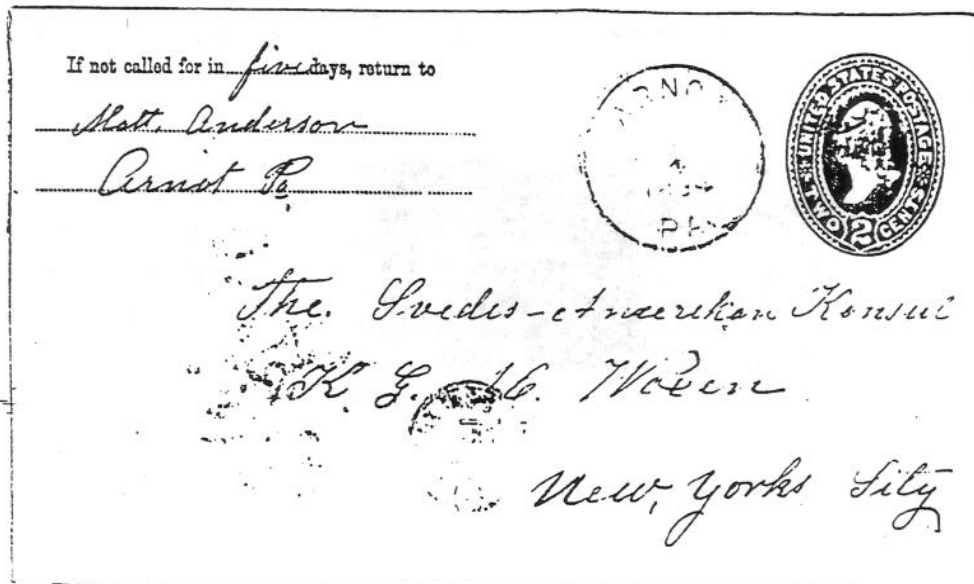 If not called for in five days, return to
Matt. Anderson
Arnot Pa
ARNO
PA
UNITED STATES POSTAGE
TWO 2 CENTS
The. Svedis-Amerekan Konsul
K. G.
New, Yorks Sity